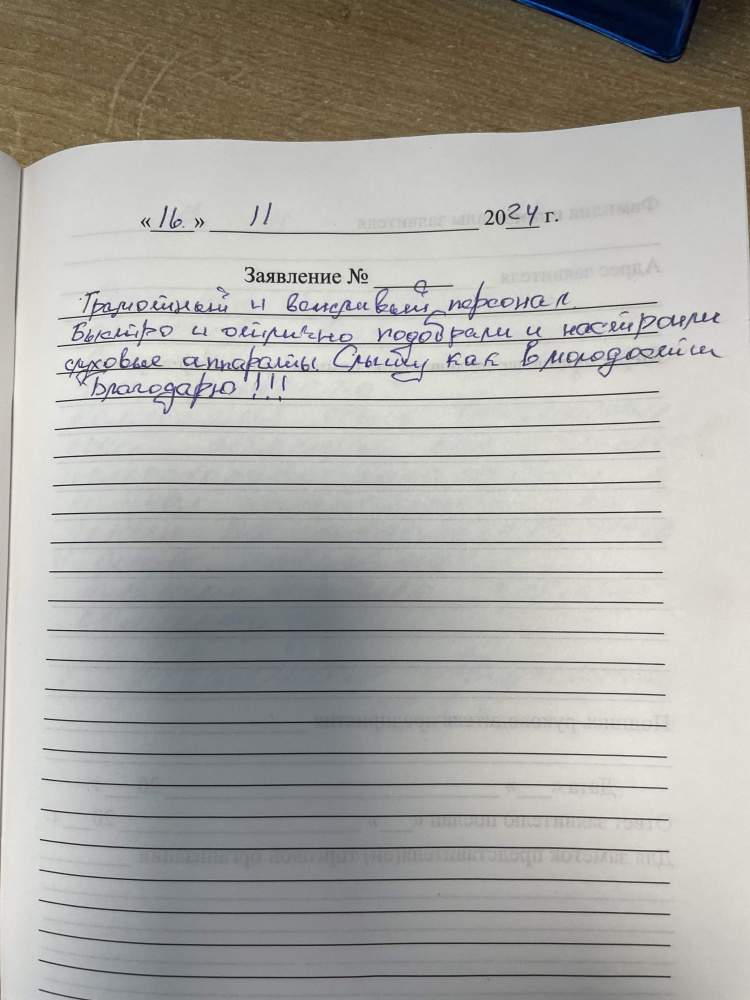 « 16. » 11 2024 г.
Заявление №
Грамотный и вежливый персонал.
Быстро и отлично подобрали и настроили
слуховые аппараты. Слышу как в молодости
Благодарю!!!